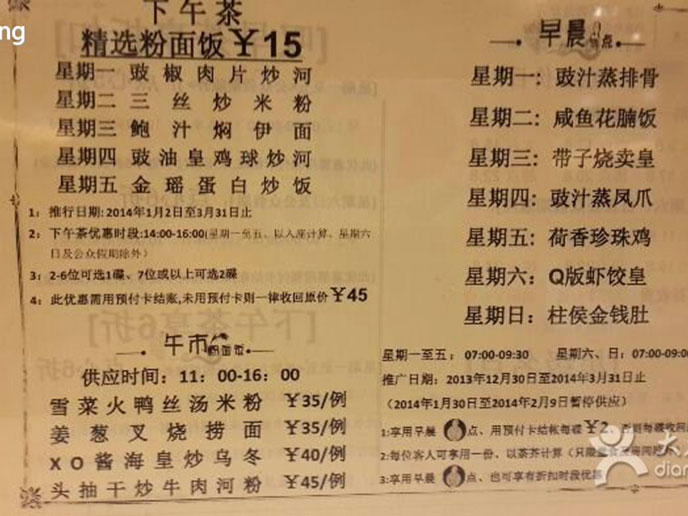 ng
下午茶
精选粉面饭￥15
星期一 豉椒肉片炒河
星期二 三丝炒米粉
星期三 鲍汁焖伊面
星期四 豉油皇鸡球炒河
星期五 金瑶蛋白炒饭
1：推行日期: 2014年1月2日至3月31日止
2：下午茶优惠时段:14:00-16:00(星期一至五、以人座计算、星期六
日及公众假期除外)
3：2-6位可选1碟、7位或以上可选2碟
4：此优惠需用预付卡结账,未用预付卡则一律收回原价￥45
午市 粉面饭
供应时间：11：00-16：00
雪菜火鸭丝汤米粉 ￥35/例
姜葱叉烧捞面 ￥35/例
XO酱海皇炒乌冬 ￥40/例
头抽干炒牛肉河粉 ￥45/例
早晨 点
星期一: 豉汁蒸排骨
星期二: 咸鱼花腩饭
星期三: 带子烧卖皇
星期四: 豉汁蒸凤爪
星期五: 荷香珍珠鸡
星期六: Q版虾饺皇
星期日: 柱侯金钱肚
星期一至五：07:00-09:30 星期六、日：07:00-09:00
推广日期：2013年12月30日至2014年3月31日止
（2014年1月30日至2014年2月9日暂停供应）
1:享用早晨 点、用预付卡结帐每碟￥2、否则每碟收回
2:每位客人可享用一份、以茶芥计算（只限
3:享用早晨 点、也可享有折扣时段优惠
大
dian